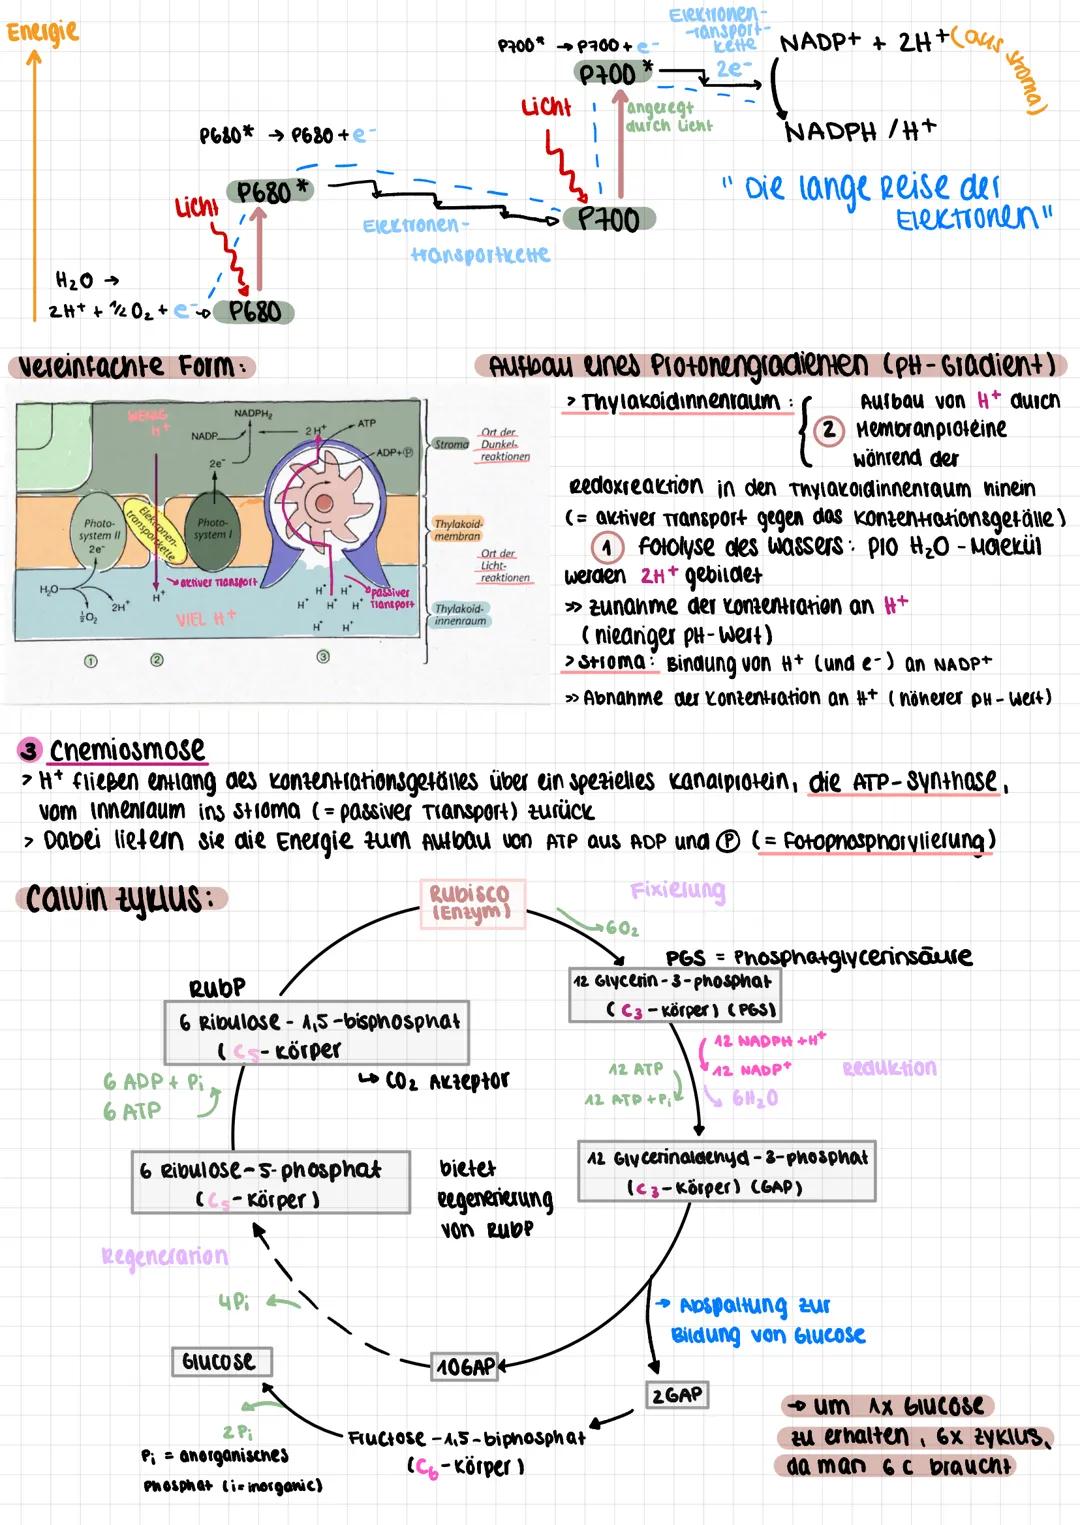 Energie
P700* → P700 + e-
Elektronen-
-transport-
kette
2e-
NADP+ + 2H+ (aus stroma)
P700 *
Licht
angeregt
durch Licht
NADPH / H+
P680* → P680 + e-
P680 *
Licht
Elektronen-
transportkette
P700
" Die lange Reise der
Elektronen"
H₂O →
2H+ + ½ O₂ + e-
P680
Vereinfachte Form:
Aufbau eines Protonengradienten (pH-Gradient)
WENIG
H+
NADPH₂
NADP
2e-
2H+
ATP
ADP+Ⓟ
Stroma
Ort der
Dunkel-
reaktionen
Photo-
system II
2e-
Elektronen-
transportkette
Photo-
system I
Thylakoid-
membran
Ort der
Licht-
reaktionen
H₂O
½O₂
2H+
H+
aktiver Transport
VIEL H+
H+ H+
H+ H+ H+
H+ H+
passiver
Transport
Thylakoid-
innenraum
① ② ③
> Thylakoidinnenraum :
② Aufbau von H+ durch
Membranproteine
während der
Redoxreaktion in den Thylakoidinnenraum hinein
(= aktiver Transport gegen das Konzentrationsgefälle)
① Fotolyse des Wassers: pro H₂O - Molekül
werden 2H+ gebildet
>> Zunahme der Konzentration an H+
( niedriger pH-Wert)
> Stroma: Bindung von H+ (und e-) an NADP+
>> Abnahme der Konzentration an H+ ( höherer pH-Wert)
3 Chemiosmose
> H+ fließen entlang des Konzentrationsgefälles über ein spezielles Kanalprotein, die ATP-Synthase,
vom Innenraum ins Stroma (= passiver Transport) zurück
> Dabei liefern sie die Energie zum Aufbau von ATP aus ADP und Ⓟ (= Fotophosphorylierung)
Calvin Zyklus:
Rubisco
(Enzym)
Fixierung
6O₂
PGS = Phosphatglycerinsäure
RubP
12 Glycerin-3-phosphat
( C₃-Körper) (PGS)
6 Ribulose-1,5-bisphosphat
( C₅-Körper
↳ CO₂ Akzeptor
12 NADPH + H+
12 NADP+
6H₂O
Reduktion
12 ATP
12 ATD + Pi
6 ADP + Pi
6 ATP
6 Ribulose-5-phosphat
( C₅-Körper )
bietet
Regenerierung
von RubP
12 Glycerinaldehyd-3-phosphat
(C₃-Körper) (GAP)
Regeneration
4Pi
→ Abspaltung zur
Bildung von Glucose
Glucose
10GAP
2GAP
2 Pi
Pi = anorganisches
Phosphat (i=inorganic)
Fructose-1,5-biphosphat
(C₆-Körper )
→ um 1x Glucose
zu erhalten, 6x Zyklus,
da man 6 C braucht